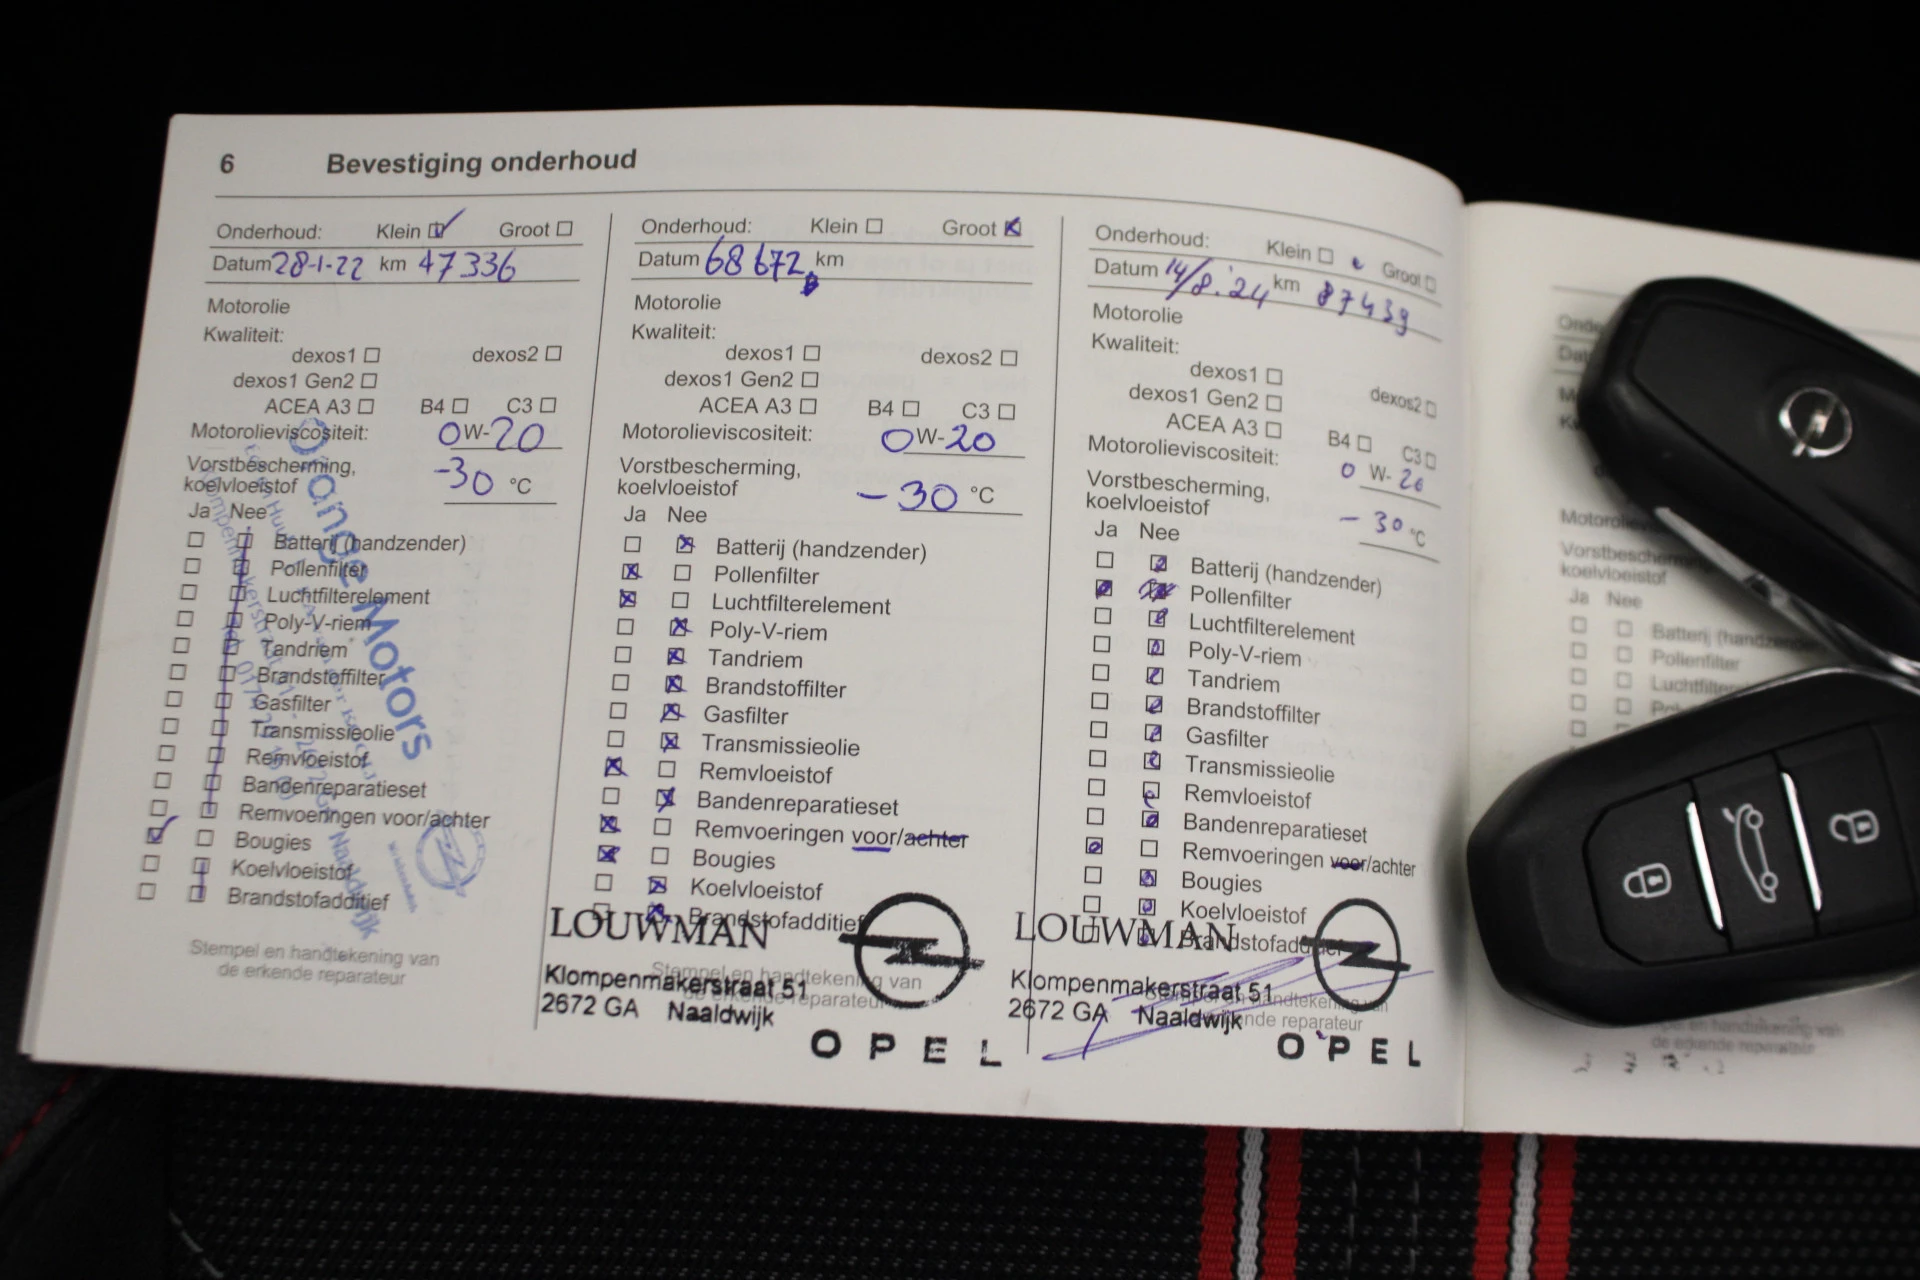 6 Bevestiging onderhoud
Onderhoud: Klein Groot
Datum 28-1-22 km 47336
Motorolie
Kwaliteit:
dexos1 dexos2
dexos1 Gen2
ACEA A3 B4 C3
Motorolieviscositeit: 0W-20
Vorstbescherming,
koelvloeistof -30 °C
Ja Nee
Batterij (handzender)
Pollenfilter
Luchtfilterelement
Poly-V-riem
Tandriem
Brandstoffilter
Gasfilter
Transmissieolie
Remvloeistof
Bandenreparatieset
Remvoeringen voor/achter
Bougies
Koelvloeistof
Brandstofadditief
Stempel en handtekening van
de erkende reparateur
Orange Motors
Naaldwijk
Onderhoud: Klein Groot
Datum 68672 km
Motorolie
Kwaliteit:
dexos1 dexos2
dexos1 Gen2
ACEA A3 B4 C3
Motorolieviscositeit: 0W-20
Vorstbescherming,
koelvloeistof -30 °C
Ja Nee
Batterij (handzender)
Pollenfilter
Luchtfilterelement
Poly-V-riem
Tandriem
Brandstoffilter
Gasfilter
Transmissieolie
Remvloeistof
Bandenreparatieset
Remvoeringen voor/achter
Bougies
Koelvloeistof
Brandstofadditief
Stempel en handtekening van
de erkende reparateur
LOUWMAN
Klompenmakerstraat 51
2672 GA Naaldwijk
OPEL
Onderhoud: Klein Groot
Datum 14/8.'24 km 87439
Motorolie
Kwaliteit:
dexos1 dexos2
dexos1 Gen2
ACEA A3 B4 C3
Motorolieviscositeit: 0 W-20
Vorstbescherming,
koelvloeistof -30 °C
Ja Nee
Batterij (handzender)
Pollenfilter
Luchtfilterelement
Poly-V-riem
Tandriem
Brandstoffilter
Gasfilter
Transmissieolie
Remvloeistof
Bandenreparatieset
Remvoeringen voor/achter
Bougies
Koelvloeistof
Brandstofadditief
Stempel en handtekening van
de erkende reparateur
LOUWMAN
Klompenmakerstraat 51
2672 GA Naaldwijk
OPEL
Vorstbescherming
koelvloeistof
Ja Nee
Batterij (handzender
Pollenfilter
de erkende reparateur